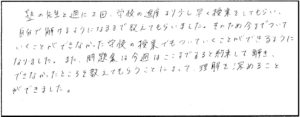 塾の先生と週に2回、学校の進度より少し早く授業をしてもらい、
自分で解けるようになるまで教えてもらいました。そのため今までついて
いくことができなかった学校の授業でもついていくことができるように
なりました。また、問題集は今週はここまでやると約束して解き、
できなかったところを教えてもらうことによって、理解を深めること
ができました。